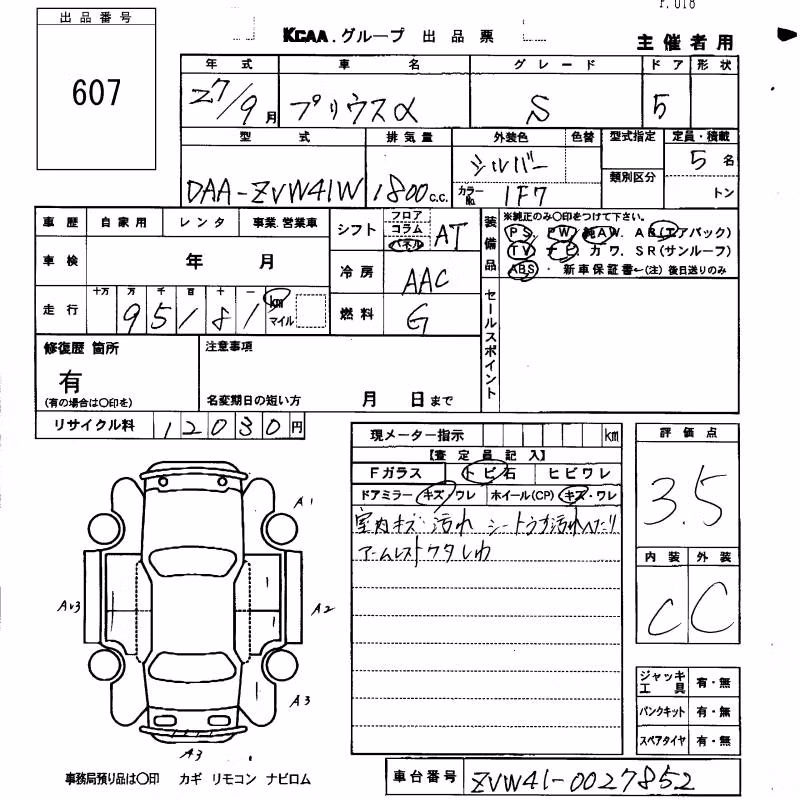 出品番号
607
KCAA.グループ 出品票
主催者用
年式 車名 グレード ドア 形状
27/9月 プリウスα S 5
型式 排気量 外装色 色替 型式指定 定員・積載
DAA-ZVW41W 1800c.c. シルバー 5名
カラーNo. 1F7 類別区分 トン
車歴 自家用 レンタ 事業.営業車
車検 年 月
走行 十万 万 千 百 十 一
95181 km マイル
シフト フロア コラム パネル AT
冷房 AAC
燃料 G
装備品 ※純正のみ〇印をつけて下さい。
PS. PW. 純AW. AB(エアバック)
TV. ナビ. カワ. SR(サンルーフ)
ABS・ 新車保証書←(注) 後日送りのみ
セールスポイント
修復歴 箇所
有
(有の場合は〇印を)
注意事項
名変期日の短い方 月 日まで
リサイクル料 12030円
現メーター指示 km
【査定員記入】
Fガラス トビ石 ヒビワレ
ドアミラー キズ・ワレ ホイール(CP) キズ・ワレ
室内キズ 汚れ シートうす汚れへたり
アームレストフタしわ
評価点
3.5
内装 外装
C C
A1
Av3
A2
A3
A3
ジャッキ工具 有・無
パンクキット 有・無
スペアタイヤ 有・無
事務局預り品は〇印 カギ リモコン ナビロム
車台番号 ZVW41-0027852